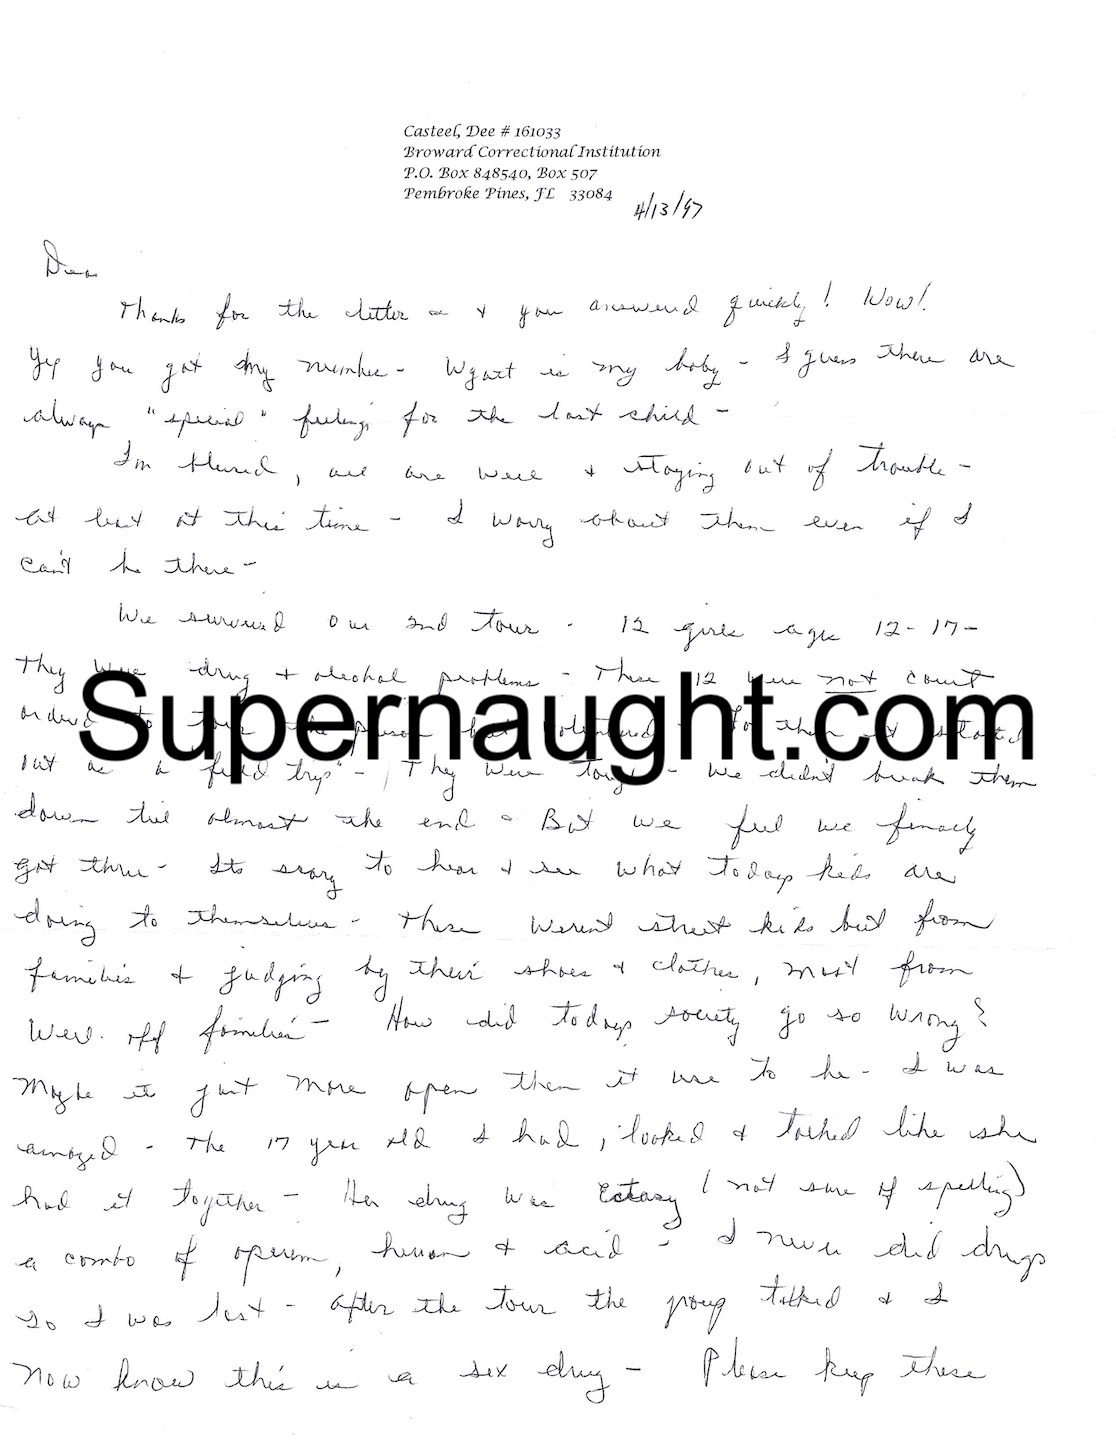 Casteel, Dee # 161033
Broward Correctional Institution
P.O. Box 848540, Box 507
Pembroke Pines, JL 33084
4/13/97
Dear
Thanks for the letter - & you answered quickly! Wow!
Yep you got my number - Wyatt is my baby - I guess there are
always "special" feelings for the last child -
I'm blessed, all are well & staying out of trouble -
at least at this time - I worry about them even if I
can't be there -
We survived our 2nd tour - 12 girls age 12-17-
They were drug & alcohol problems - These 12 were not court
ordered to tour the prison but volunteered - For them it started
Supernaught.com
out as a "field trip" - They were tough - We didn't break them
down till almost the end - But we feel we finally
got thru - Its scary to hear & see what todays kids are
doing to themselves - These weren't street kids but from
families & judging by their shoes & clothes, most from
well off families - How did todays society go so wrong?
Maybe its just more open then it use to be - I was
amazed - The 17 year old I had, looked & talked like she
had it together - Her drug was Ectasy (not sure of spelling)
a combo of & acid - I never did drugs
so I was lost - After the tour the group talked & I
now know this is a sex drug - Please keep these